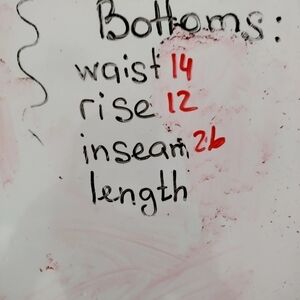 Bottoms:
waist 14
rise 12
inseam 26
length